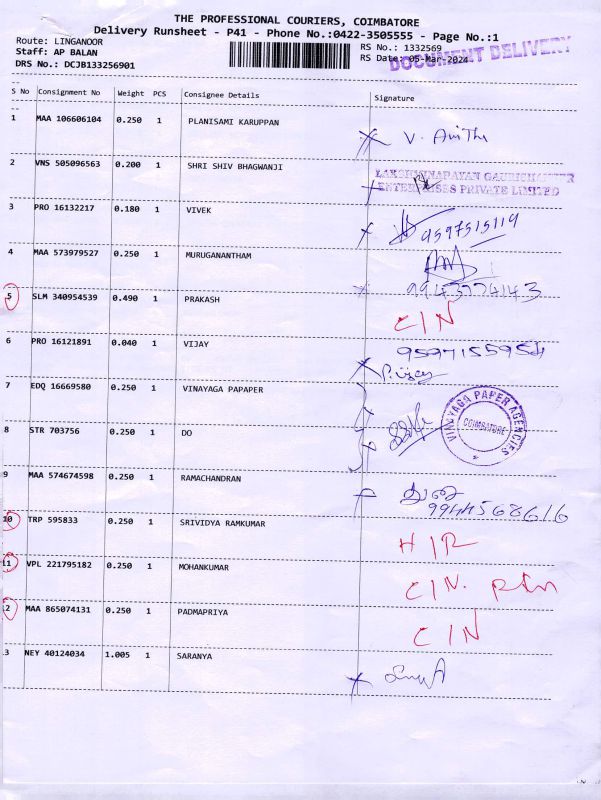 THE PROFESSIONAL COURIERS, COIMBATORE
Delivery Runsheet - P41 - Phone No.:0422-3505555 - Page No.:1
Route: LINGANOOR
Staff: AP BALAN
DRS No.: DCJB133256901
RS No.: 1332569
RS Date: 05-Mar-2024
DOCUMENT DELIVERY
S No Consignment No Weight PCS Consignee Details Signature
1 MAA 106606104 0.250 1 PLANISAMI KARUPPAN V. Anitha
2 VNS 505096563 0.200 1 SHRI SHIV BHAGWANJI
ENTERPRISES PRIVATE LIMITED
3 PRO 16132217 0.180 1 VIVEK 9597515119
4 MAA 573979527 0.250 1 MURUGANANTHAM
5 SLM 340954539 0.490 1 PRAKASH C/N
6 PRO 16121891 0.040 1 VIJAY 9597155954
Vijay
7 EDQ 16669580 0.250 1 VINAYAGA PAPAPER
VINAYAGA PAPER AGENCIES
COIMBATORE
8 STR 703756 0.250 1 DO
9 MAA 574674598 0.250 1 RAMACHANDRAN
9944568616
10 TRP 595833 0.250 1 SRIVIDYA RAMKUMAR
11 VPL 221795182 0.250 1 MOHANKUMAR C/N.
12 MAA 865074131 0.250 1 PADMAPRIYA C/N
3 NEY 40124034 1.005 1 SARANYA